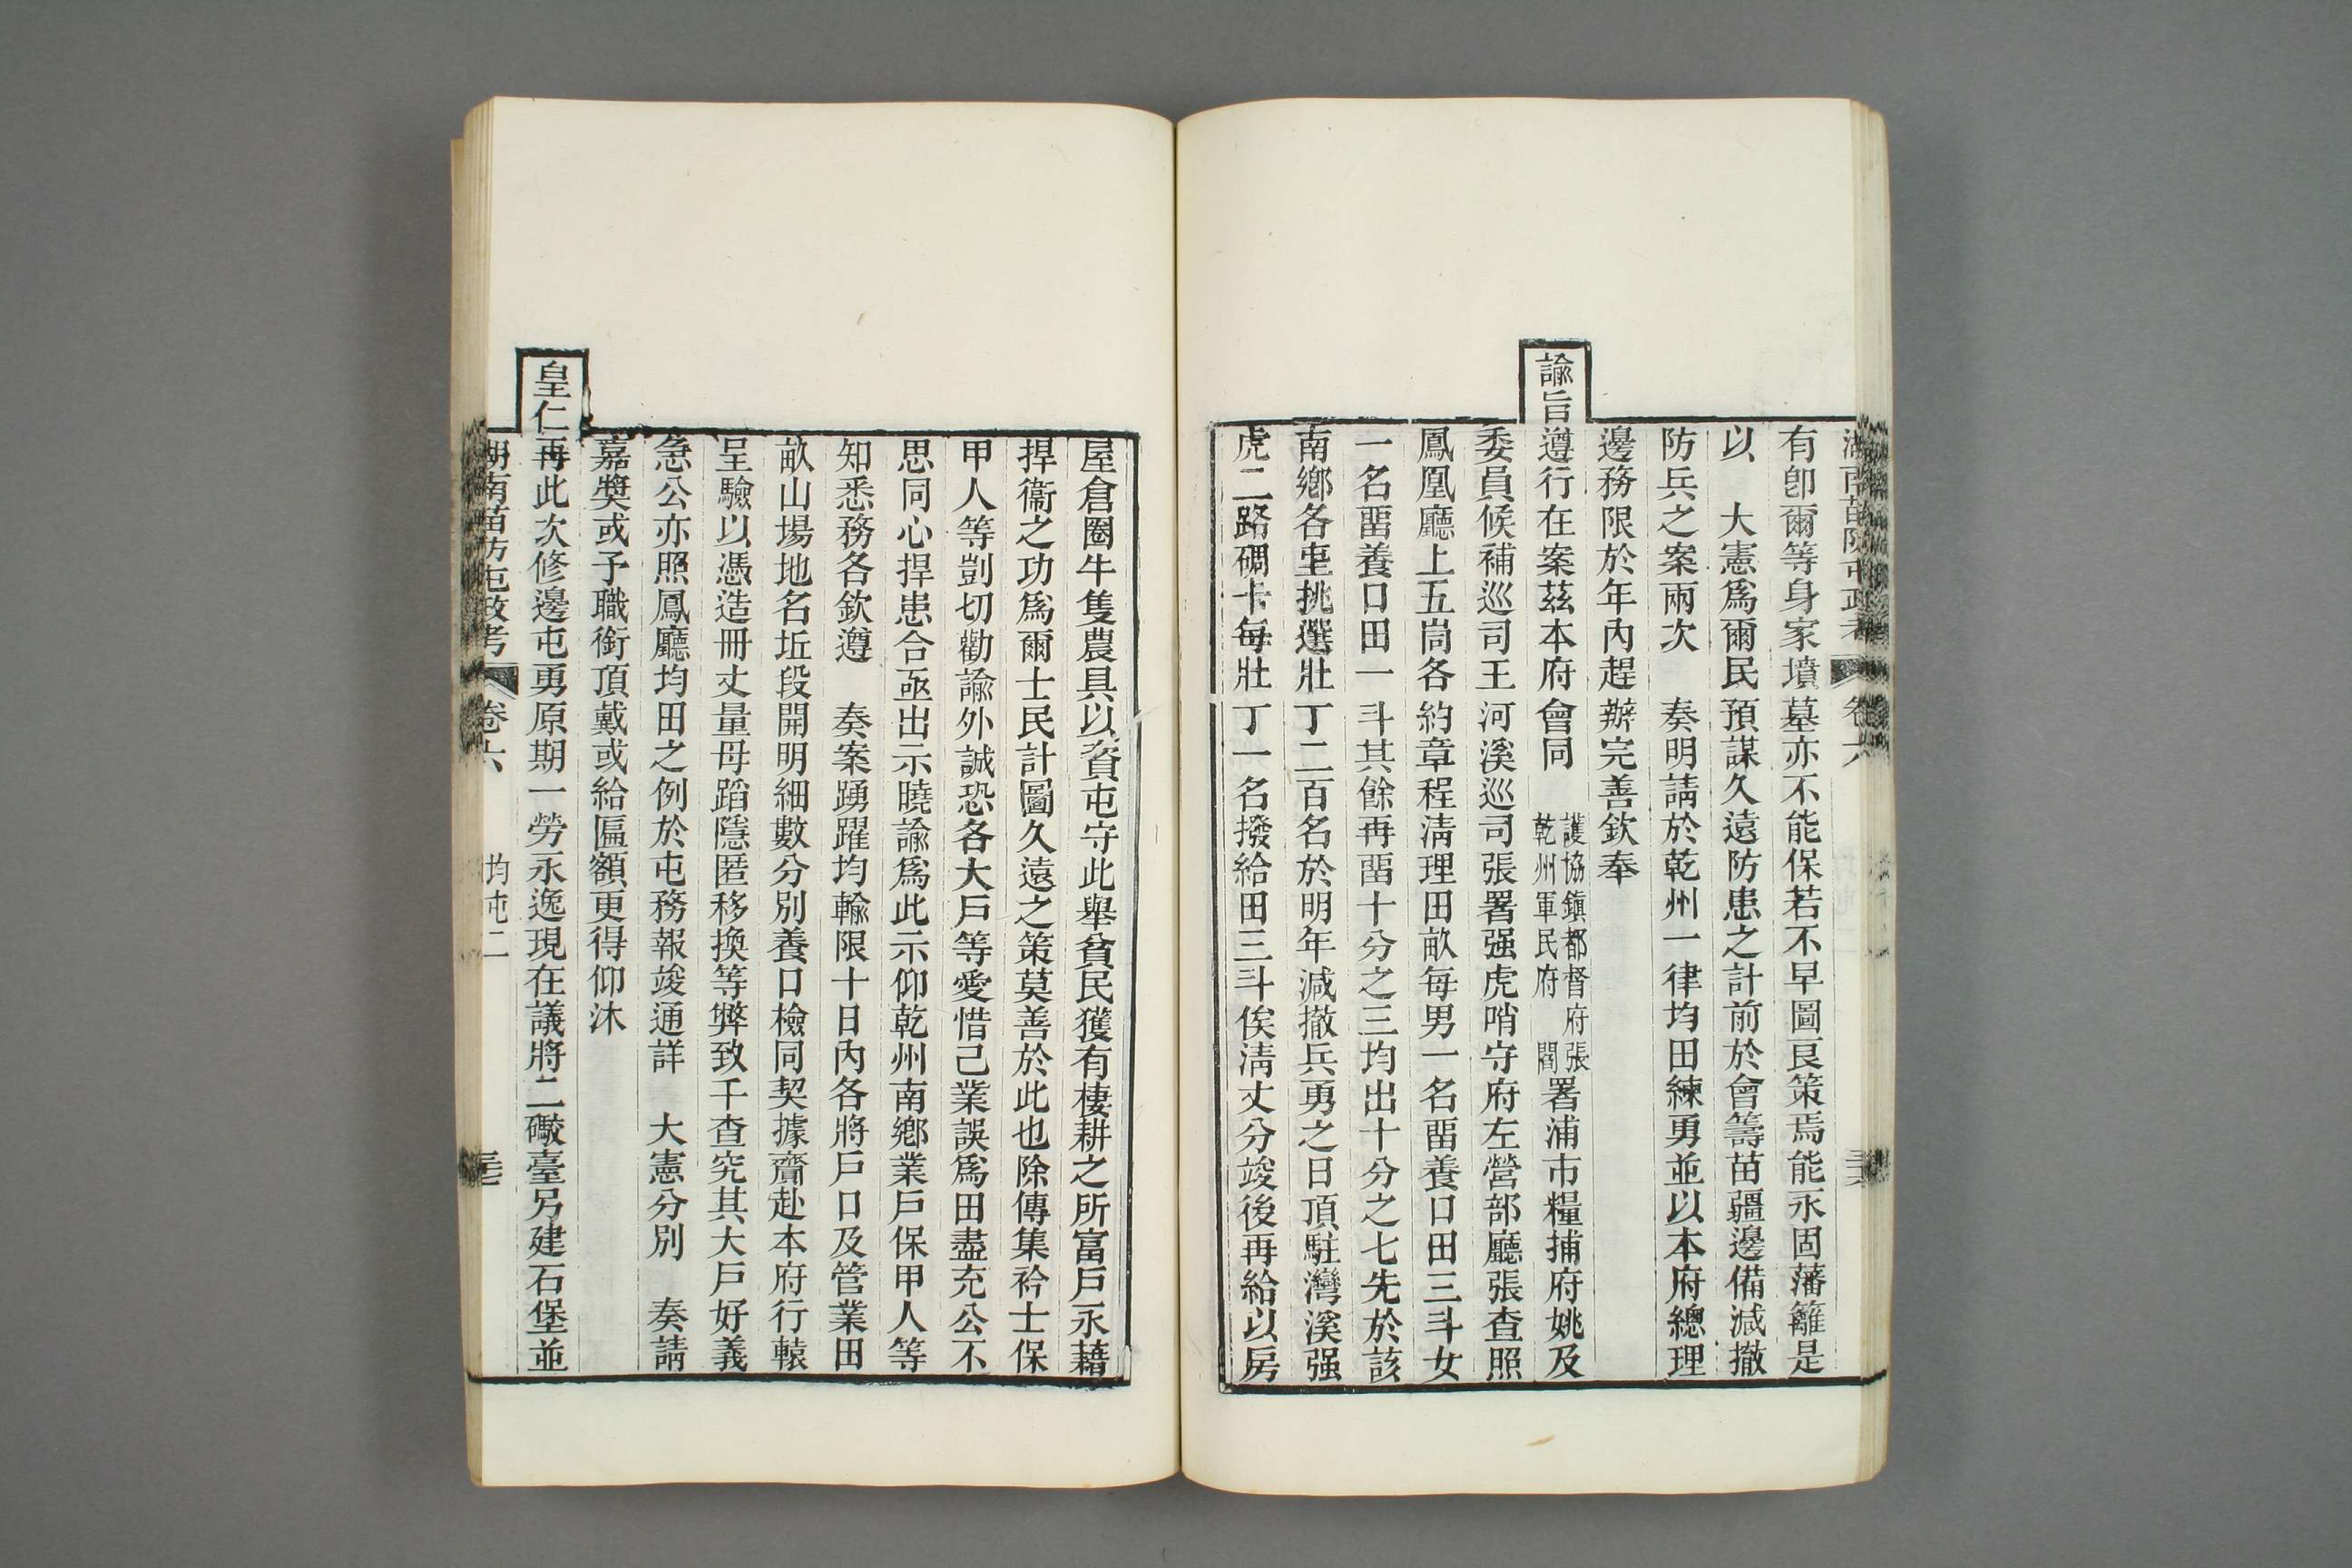 湖南苗防屯政考 卷六
有卽爾等身家墳墓亦不能保若不早圖艮策焉能永固藩籬是
以 大憲爲爾民預謀久遠防患之計前於會籌苗疆邊備減撤
防兵之案兩次 奏明請於乾州一律均田練勇並以本府總理
邊務限於年內趕辦完善欽奉
諭旨遵行在案茲本府會同 護協鎮都督府張 乾州軍民府 閻 署浦市糧捕府姚及
委員候補巡司王河溪巡司張署强虎哨守府左營部廳張查照
鳳凰廳上五峝各約章程淸理田畝每男一名畱養口田三斗女
一名畱養口田一斗其餘再畱十分之三均出十分之七先於該
南鄉各里挑選壯丁二百名於明年減撤兵勇之日頂駐灣溪强
虎二路碉卡每壯丁一名撥給田三斗俟淸丈分竣後再給以房
屋倉圈牛隻農具以資屯守此舉貧民獲有棲耕之所富戶永藉
捍衞之功爲爾士民計圖久遠之策莫善於此也除傳集衿士保
甲人等剴切勸諭外誠恐各大戶等愛惜己業誤爲田盡充公不
思同心捍患合亟出示曉諭爲此示仰乾州南鄉業戶保甲人等
知悉務各欽遵 奏案踴躍均輸限十日內各將戶口及管業田
畝山場地名坵段開明細數分別養口檢同契據齎赴本府行轅
呈驗以憑造冊丈量毋蹈隱匿移換等弊致干查究其大戶好義
急公亦照鳳廳均田之例於屯務報竣通詳 大憲分別 奏請
嘉奬或予職銜頂戴或給匾額更得仰沐
皇仁再此次修邊屯勇原期一勞永逸現在議將二礮臺另建石堡並
湖南苗防屯政考 卷六 均屯二